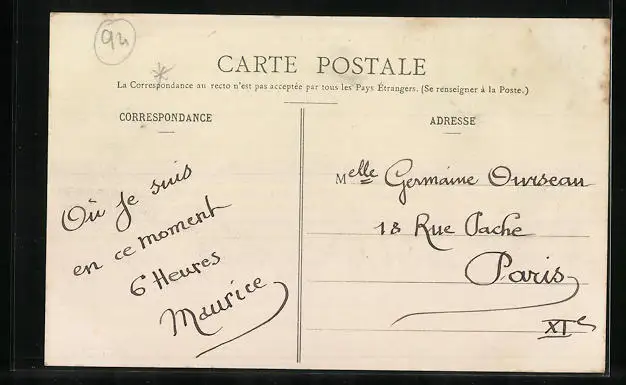 94
CARTE POSTALE
La Correspondance au recto n'est pas acceptée par tous les Pays Étrangers. (Se renseigner à la Poste.)
CORRESPONDANCE
ADRESSE
Où je suis
en ce moment
6 Heures
Maurice
Melle Germaine Ourseau
18 Rue Pache
Paris
XIe